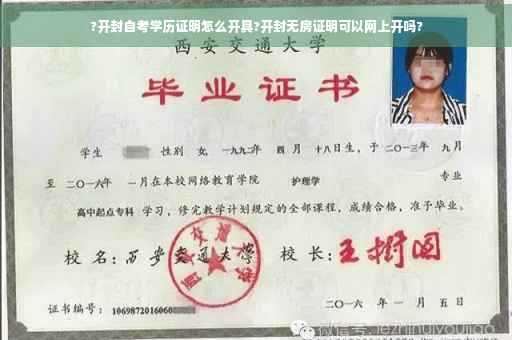 ?开封自考学历证明怎么开具?开封无房证明可以网上开吗?
西安交通大学
毕业证书
学生 性别 女, 一九九二年 四月 十八日生, 于二〇一三年 九月
至 二〇一六年 一月在本校网络教育学院 护理学 专业
高中起点专科 学习, 修完教学计划规定的全部课程, 成绩合格, 准予毕业。
校名: 西安交通大学 校长: 王树国
西安交通大学
证书编号: 1069872016060 二〇一六年 一月 五日
微信号: jezhihuiyoujiao